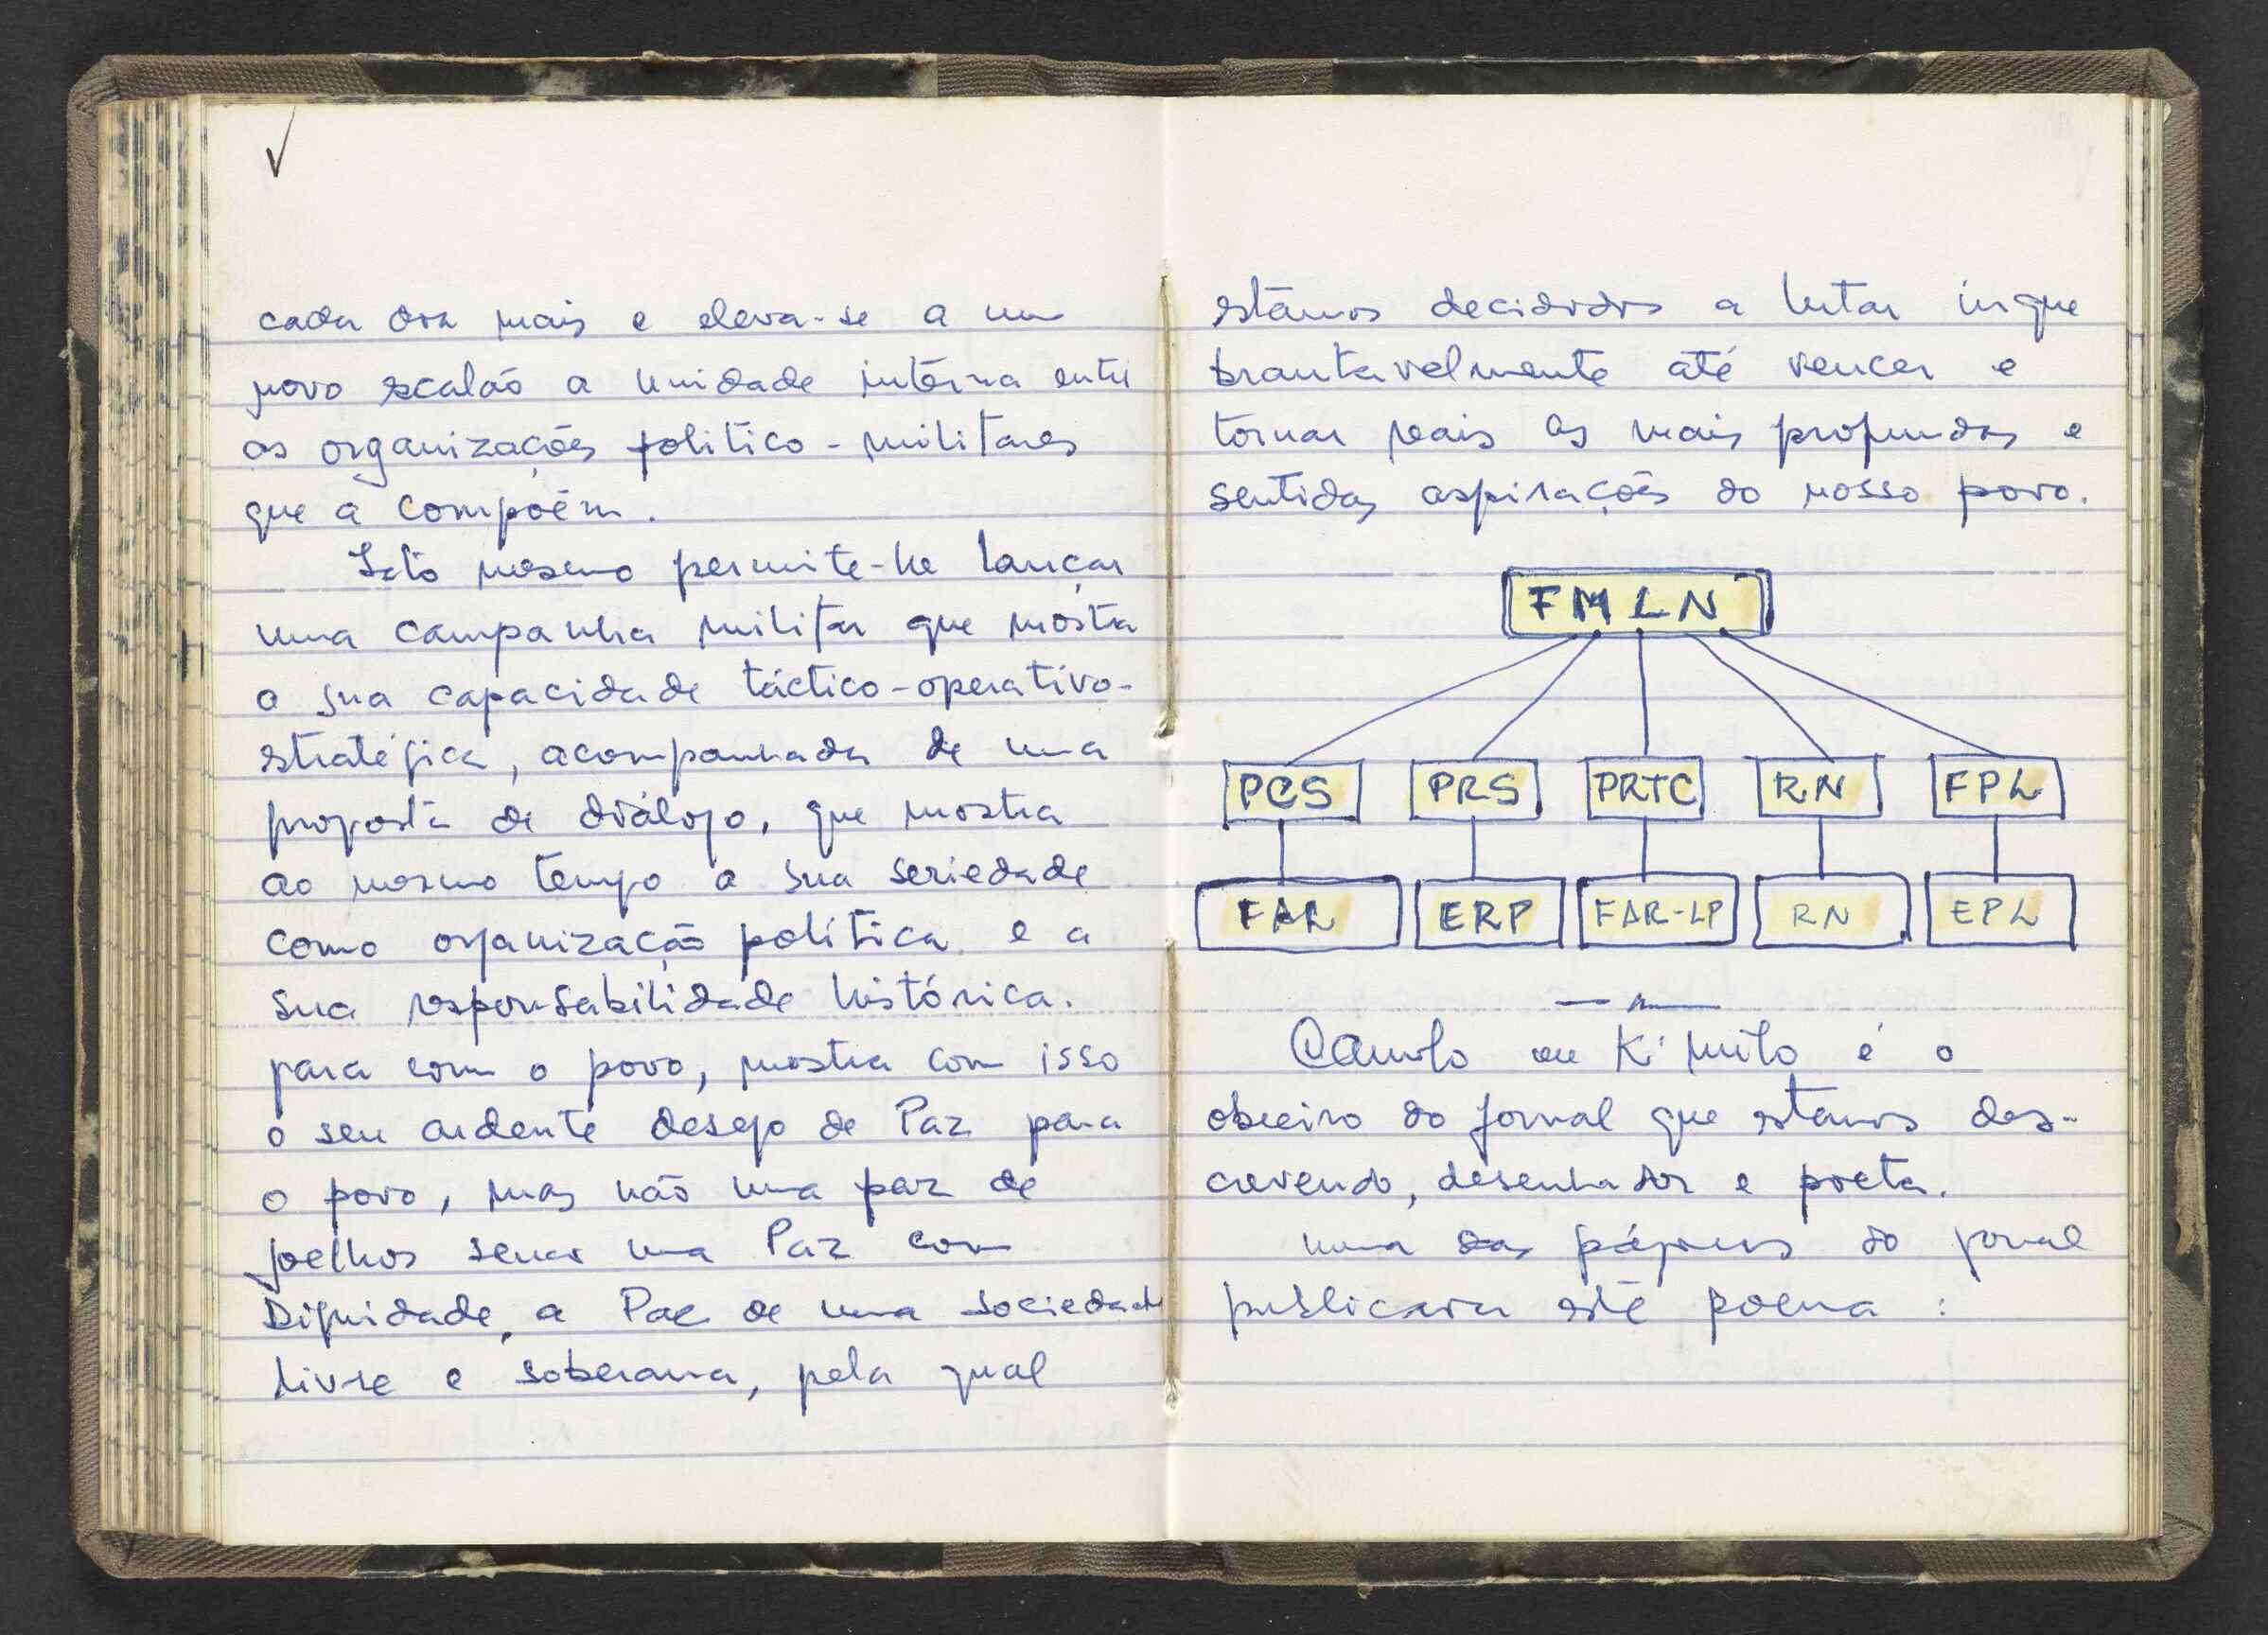 cada dia mais e eleva-se a um
novo escalão a unidade interna entre
as organizações politico-militares
que a compoêm.
Isto mesmo permite-lhe lançar
uma campanha militar que mostra
a sua capacidade táctico-operativo-
estratégica, acompanhada de uma
proposta de diálogo, que mostra
ao mesmo tempo a sua seriedade
como organização política e a
sua responsabilidade histórica.
para com o povo, mostra com isso
o seu ardente desejo de Paz para
o povo, mas não uma paz de
joelhos senão uma Paz com
Dignidade, a Paz de uma sociedade
livre e soberana, pela qual
estâmos decididos a lutar inque
brantavelmente até vencer e
tornar reais as mais profundas e
sentidas aspirações do nosso povo.
FMLN
PCS PRS PRTC RN FPL
FAL ERP FAR-LP RN EPL
Camilo ou K'milo é o
obreiro do jornal que estamos des-
crevendo, desenhador e poeta.
numa das páginas do jornal
publicara este poema :